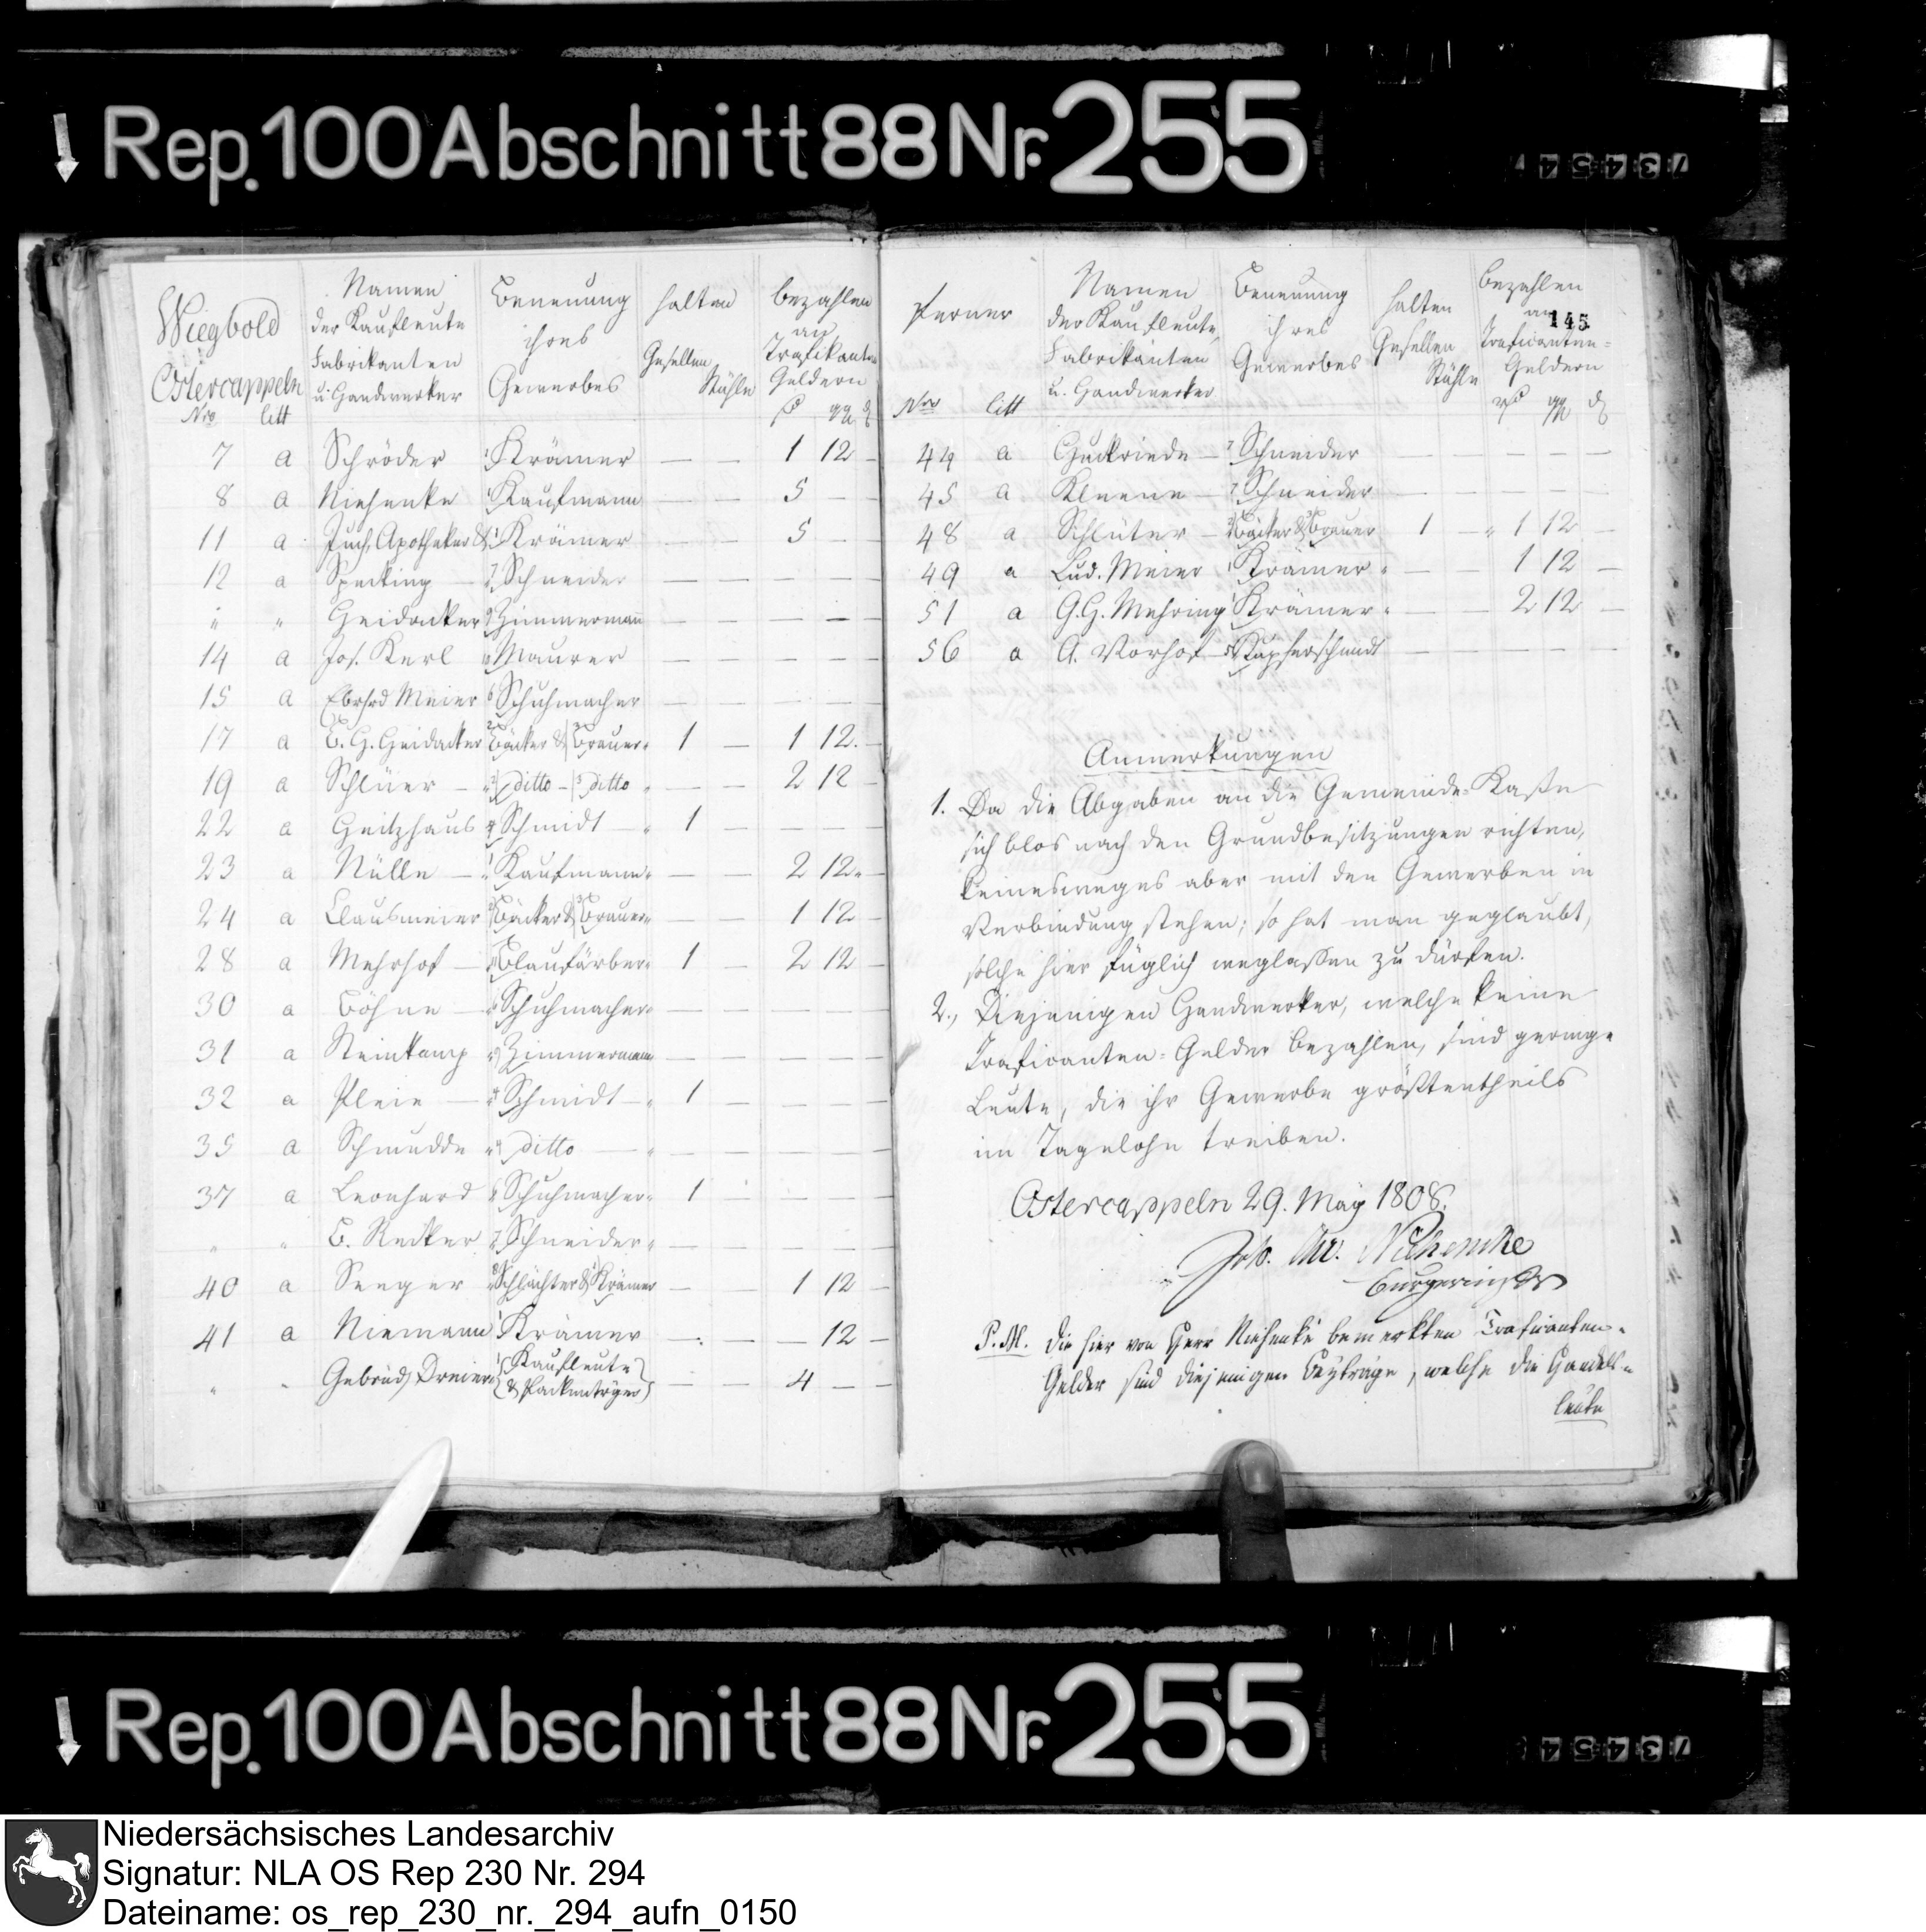 Rep. 100 Abschnitt 88 Nr. 255
73454
Wiegbold
Ostercappeln
Nro litt
Namen
der Kaufleute
Fabrikanten
u: Handwerker
Benennung
ihres
Gewerbes
halten
Gesellen
Stühle
bezahlen
an
Trafikanten
Geldern
7 a Schröder 1 Krämer — — 1 12 —
8 a Niehenke 1 Kaufmann — — 5 — —
11 a Juch, Apotheker & 1 Krämer — — 5 — —
12 a Specking 7 Schneider — — — — —
" " Heidacker 9 Zimmermann — — — — —
14 a Jos. Kerl Maurer — — — — —
15 a Ebrhrd Meier 6 Schuhmacher — — — — —
17 a B. H. Heidacker 2 Bäcker & 3 Brauer 1 — 1 12 —
19 a Schlüer — 2 ditto — 3 ditto — — 2 12 —
22 a Heitzhaus 4 Schmidt — 1 — — — —
23 a Nülle — 1 Kaufmann — — 2 12 —
24 a Clausmeier 2 Bäcker & 3 Brauer — — 1 12 —
28 a Mehrhof — Blaufärber 1 — 2 12 —
30 a Böhne — 6 Schuhmacher — — — — —
31 a Steinkamp 9 Zimmermann — — — — —
32 a Pleie — 4 Schmidt — 1 — — — —
35 a Schmudde 4 ditto — — — — — —
37 a Leonhard 6 Schuhmacher 1 — — — —
" " B. Recker 7 Schneider — — — — —
40 a Seeger 8 Schlächter & 1 Krämer — — 1 12 —
41 a Niemann 1 Krämer — — — 12 —
" " Gebrüd, Dreier 1 Kaufleute
& Packenträger — — 4 — —
145
Ferner
Nro litt
Namen
der Kaufleute,
Fabrikanten
u. Handwerker
Benennung
ihres
Gewerbes
halten
Gesellen
Stühle
bezahlen
an
Traficanten=
Geldern
44 a 7 Schneider — — — — —
45 a Kleene — 7 Schneider — — — — —
48 a Schlüter — 2 Bäcker & 3 Brauer 1 — 1 12 —
49 a Lud. Meier 1 Krämer — — 1 12 —
51 a G. H. Mehring 1 Krämer — — 2 12 —
56 a A. Vorhof 5 Kupferschmidt — — — — —
Anmerkungen
1. Da die Abgaben an die Gemeinde=Kasse
sich blos nach den Grundbesitzungen richten,
keinesweges aber mit den Gewerben in
Verbindung stehen; so hat man geglaubt,
solche hier füglich weglassen zu dürfen.
2., Diejenigen Handwerker, welche keine
Traficanten=Gelder bezahlen, sind geringe
Leute, die ihr Gewerbe größtentheils
im Tagelohn treiben.
Ostercappeln 29. May 1808.
Joh. Niehencke
Burgermstr
P.M. Die hier von Herr Niehenke bemerkten Traficanten=
Gelder sind diejenigen Beyträge, welche die Handels=
leute
Rep. 100 Abschnitt 88 Nr. 255
73454
Niedersächsisches Landesarchiv
Signatur: NLA OS Rep 230 Nr. 294
Dateiname: os_rep_230_nr._294_aufn_0150